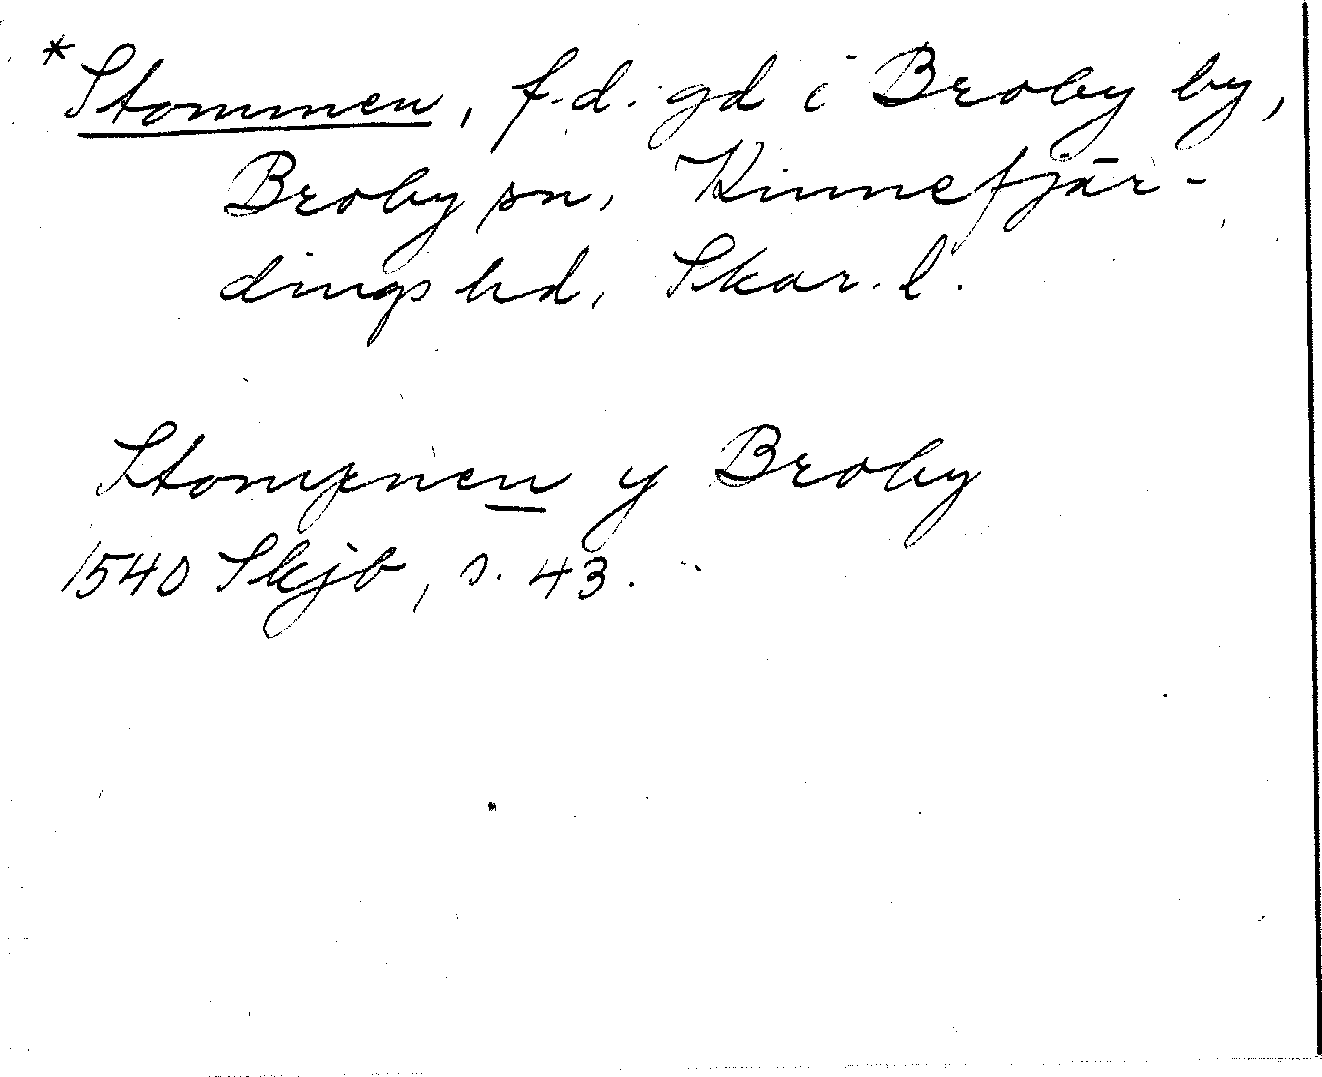 *Stommen, f.d. gd i Broby by,
Broby sn, Kinnefjär-
dings hd, Skar. l.
Stompnen y Broby
1540 Skjb, s. 43.